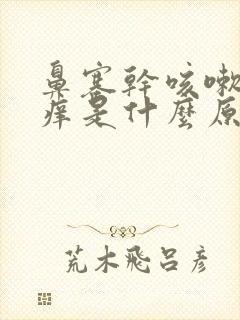 鼻塞幹咳嗽
痒是什麼原
荒木飛呂彥